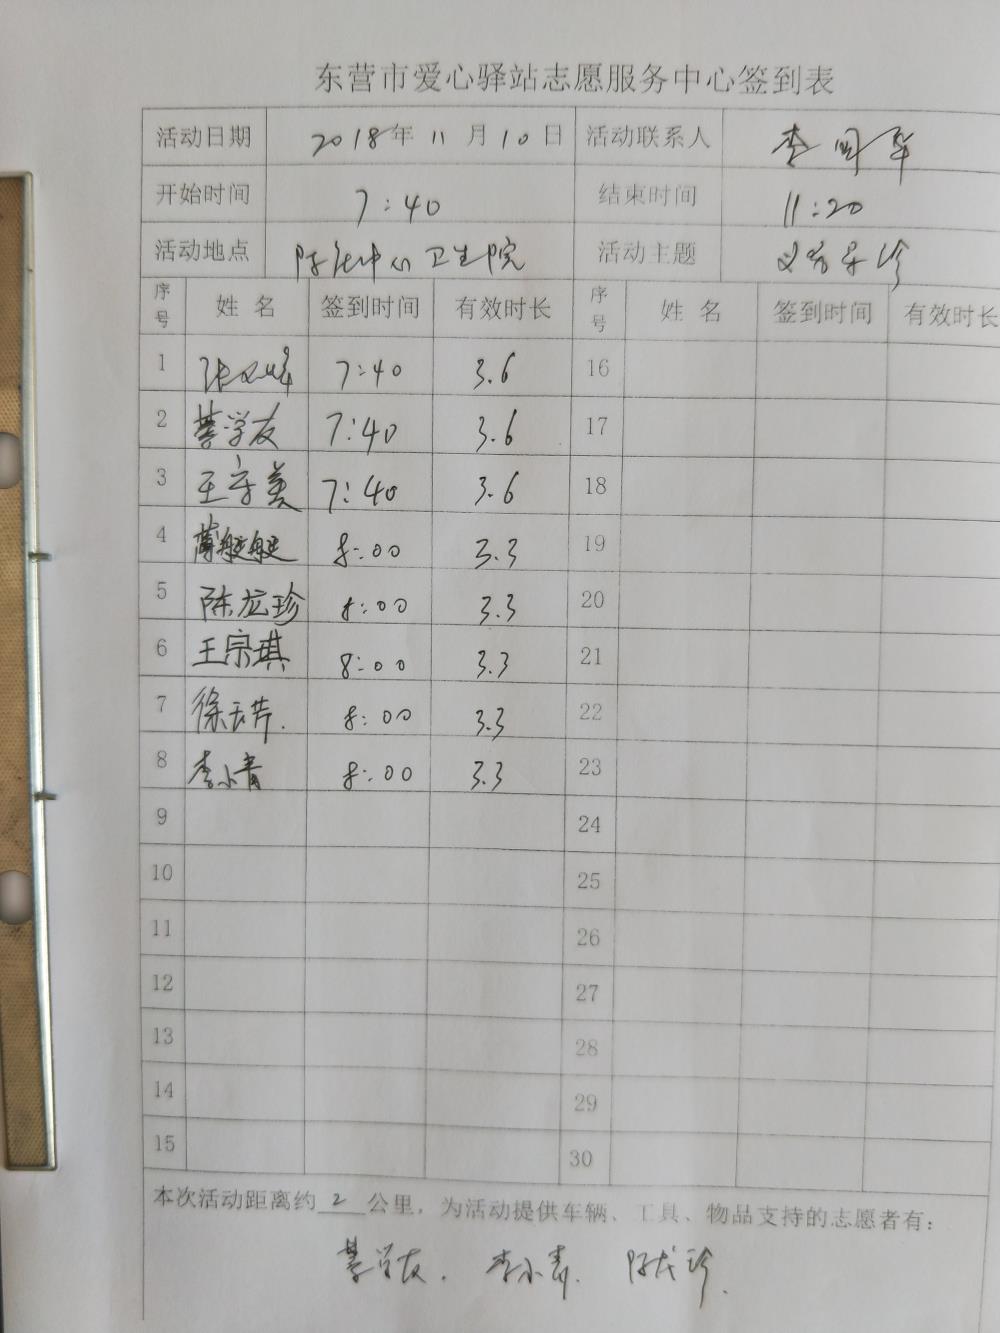 东营市爱心驿站志愿服务中心签到表
活动日期 2018年 11 月 10 日 活动联系人 李国华
开始时间 7:40 结束时间 11:20
活动地点 中心卫生院 活动主题
序号 姓 名 签到时间 有效时长 序号 姓 名 签到时间 有效时长
1 7:40 3.6 16
2 綦学友 7:40 3.6 17
3 王守美 7:40 3.6 18
4 薄艇艇 8:00 3.3 19
5 陈龙珍 8:00 3.3 20
6 王宗琪 8:00 3.3 21
7 徐玉芹. 8:00 3.3 22
8 李小青 8:00 3.3 23
9 24
10 25
11 26
12 27
13 28
14 29
15 30
本次活动距离约 2 公里，为活动提供车辆、工具、物品支持的志愿者有：
綦学友. 李小青. 陈龙珍.